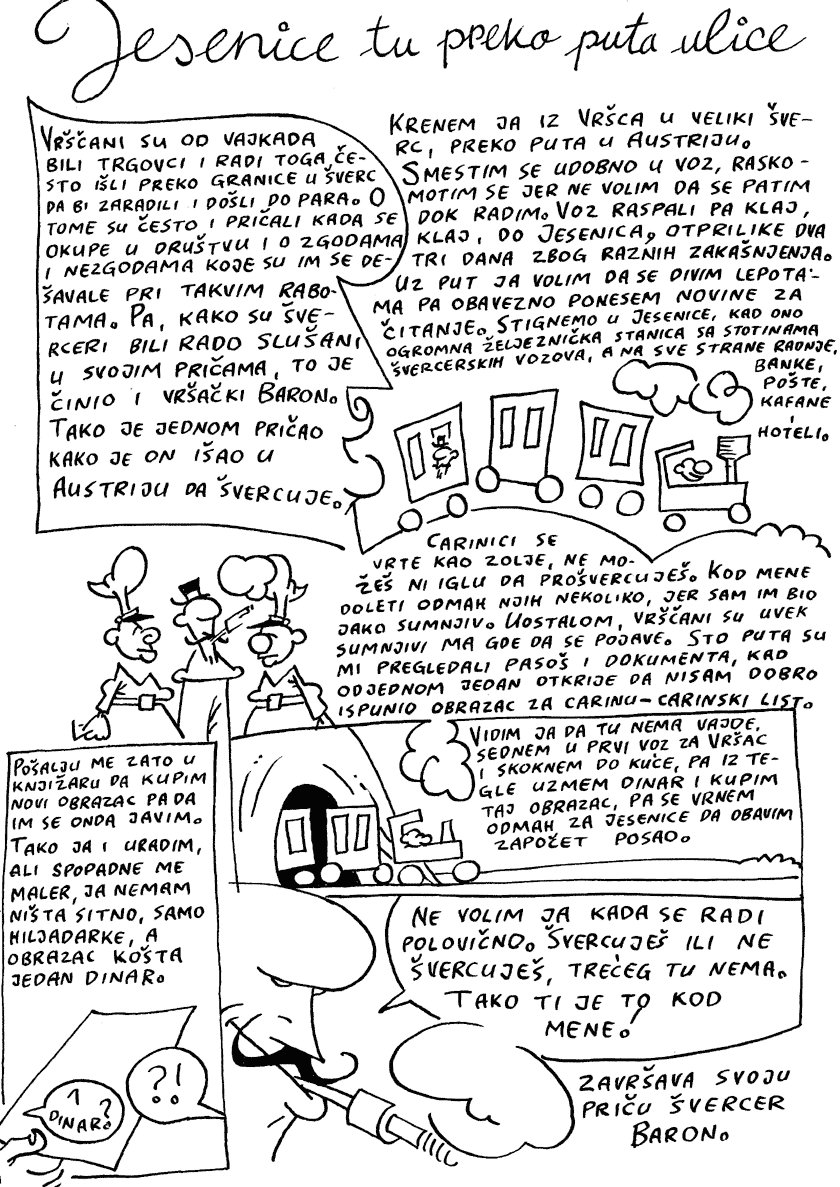 Jesenice tu preko puta ulice
VRŠČANI SU OD VAJKADA
BILI TRGOVCI I RADI TOGA ČE-
STO IŠLI PREKO GRANICE U ŠVERC
DA BI ZARADILI I DOŠLI DO PARA. O
TOME SU ČESTO I PRIČALI KADA SE
OKUPE U DRUŠTVU I O ZGODAMA
I NEZGODAMA KOJE SU IM SE DE-
ŠAVALE PRI TAKVIM RABO-
TAMA. PA, KAKO SU ŠVE-
RCERI BILI RADO SLUŠANI
U SVOJIM PRIČAMA, TO JE
ČINIO I VRŠAČKI BARON.
TAKO JE JEDNOM PRIČAO
KAKO JE ON IŠAO U
AUSTRIJU DA ŠVERCUJE.
KRENEM JA IZ VRŠCA U VELIKI ŠVE-
RC, PREKO PUTA U AUSTRIJU.
SMESTIM SE UDOBNO U VOZ, RASKO-
MOTIM SE JER NE VOLIM DA SE PATIM
DOK RADIM. VOZ RASPALI PA KLAJ,
KLAJ, DO JESENICA, OTPRILIKE DVA
TRI DANA ZBOG RAZNIH ZAKAŠNJENJA.
UZ PUT JA VOLIM DA SE DIVIM LEPOTA-
MA PA OBAVEZNO PONESEM NOVINE ZA
ČITANJE. STIGNEMO U JESENICE, KAD ONO
OGROMNA ŽELJEZNIČKA STANICA SA STOTINAMA
ŠVERCERSKIH VOZOVA, A NA SVE STRANE RADNJE,
BANKE,
POŠTE,
KAFANE
I
HOTELI.
CARINICI SE
VRTE KAO ZOLJE, NE MO-
ŽEŠ NI IGLU DA PROŠVERCUJEŠ. KOD MENE
DOLETI ODMAH NJIH NEKOLIKO, JER SAM IM BIO
JAKO SUMNJIV. UOSTALOM, VRŠČANI SU UVEK
SUMNJIVI MA GDE DA SE POJAVE. STO PUTA SU
MI PREGLEDALI PASOŠ I DOKUMENTA, KAD
ODJEDNOM JEDAN OTKRIJE DA NISAM DOBRO
ISPUNIO OBRAZAC ZA CARINU-CARINSKI LIST.
POŠALJU ME ZATO U
KNJIŽARU DA KUPIM
NOVI OBRAZAC PA DA
IM SE ONDA JAVIM.
TAKO JA I URADIM,
ALI SPOPADNE ME
MALER, JA NEMAM
NIŠTA SITNO, SAMO
HILJADARKE, A
OBRAZAC KOŠTA
JEDAN DINAR.
1
DINAR?
?!
VIDIM JA DA TU NEMA VAJDE,
SEDNEM U PRVI VOZ ZA VRŠAC
I SKOKNEM DO KUĆE, PA IZ TE-
GLE UZMEM DINAR I KUPIM
TAJ OBRAZAC, PA SE VRNEM
ODMAH ZA JESENICE DA OBAVIM
ZAPOČET POSAO.
NE VOLIM JA KADA SE RADI
POLOVIČNO. ŠVERCUJEŠ ILI NE
ŠVERCUJEŠ, TREĆEG TU NEMA.
TAKO TI JE TO KOD
MENE!
ZAVRŠAVA SVOJU
PRIČU ŠVERCER
BARON.